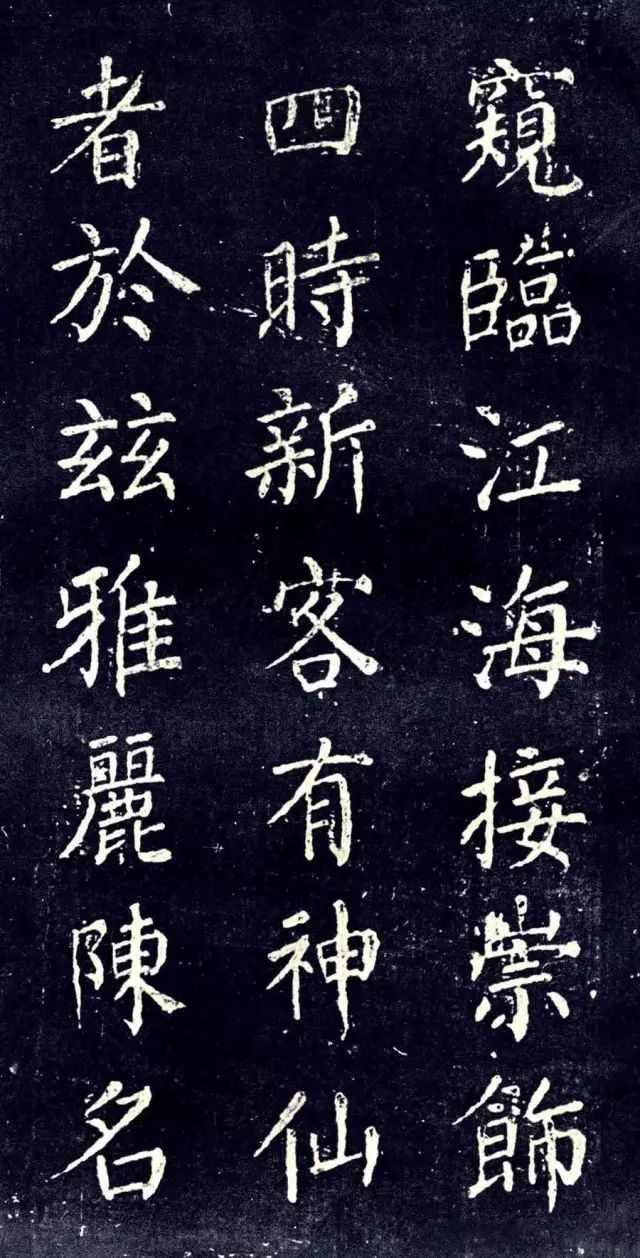 窺臨江海接崇飾
四時新客有神仙
者於兹雅麗陳名